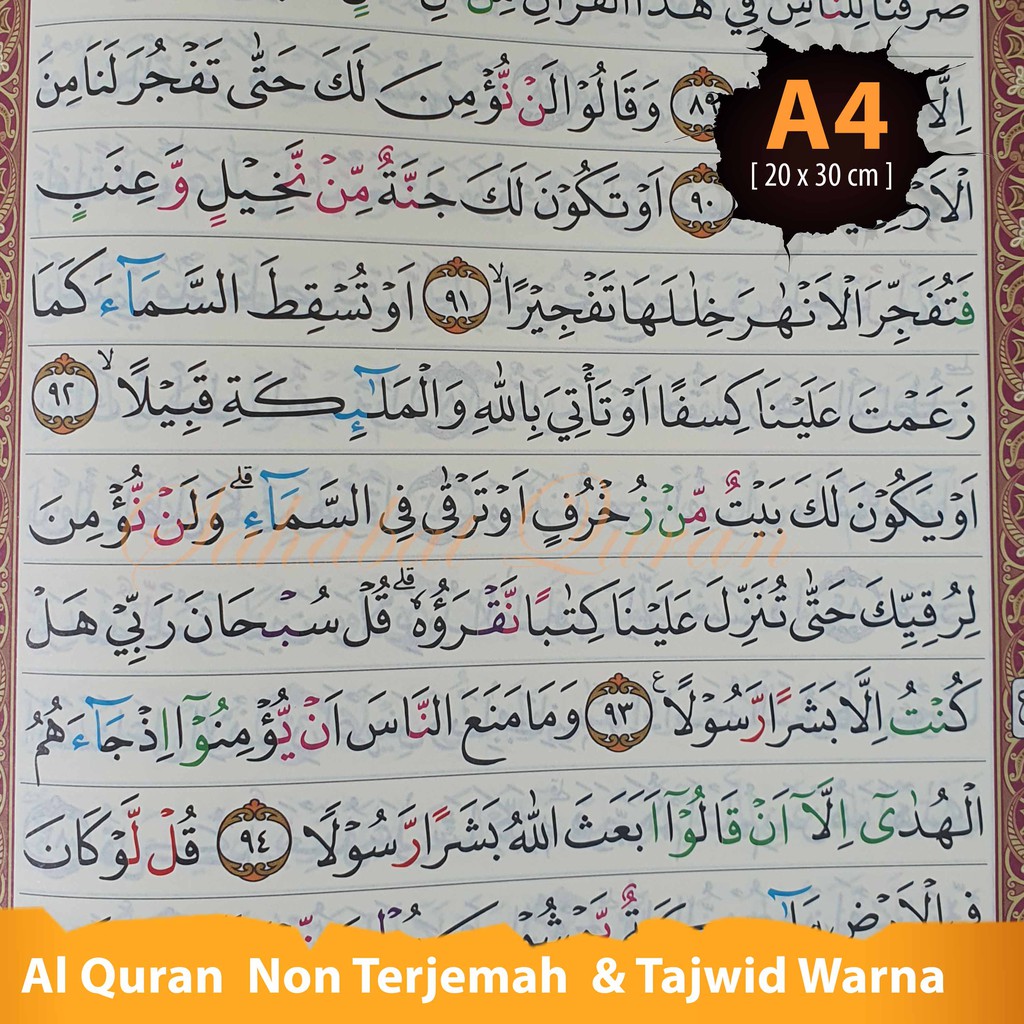 صَرَّفْنَا لِلنَّاسِ فِيْ هٰذَا الْقُرْاٰنِ مِنْ
اِلَّا ۝٨٩ وَقَالُوْا لَنْ نُّؤْمِنَ لَكَ حَتّٰى تَفْجُرَ لَنَا مِنَ
۝٩٠ اَوْ تَكُوْنَ لَكَ جَنَّةٌ مِّنْ نَّخِيْلٍ وَّعِنَبٍ
فَتُفَجِّرَ الْاَنْهٰرَ خِلٰلَهَا تَفْجِيْرًاۙ ۝٩١ اَوْ تُسْقِطَ السَّمَاۤءَ كَمَا
زَعَمْتَ عَلَيْنَا كِسَفًا اَوْ تَأْتِيَ بِاللّٰهِ وَالْمَلٰۤىِٕكَةِ قَبِيْلًاۙ ۝٩٢
اَوْ يَكُوْنَ لَكَ بَيْتٌ مِّنْ زُخْرُفٍ اَوْ تَرْقٰى فِى السَّمَاۤءِۗ وَلَنْ نُّؤْمِنَ
لِرُقِيِّكَ حَتّٰى تُنَزِّلَ عَلَيْنَا كِتٰبًا نَّقْرَؤُهٗۗ قُلْ سُبْحَانَ رَبِّيْ هَلْ
كُنْتُ اِلَّا بَشَرًا رَّسُوْلًا ۝٩٣ وَمَا مَنَعَ النَّاسَ اَنْ يُّؤْمِنُوْٓا اِذْ جَاۤءَهُمُ
الْهُدٰىٓ اِلَّآ اَنْ قَالُوْٓا اَبَعَثَ اللّٰهُ بَشَرًا رَّسُوْلًا ۝٩٤ قُلْ لَّوْ كَانَ
فِى الْاَرْضِ
A4
[ 20 x 30 cm ]
Sahabat Quran
Al Quran Non Terjemah & Tajwid Warna